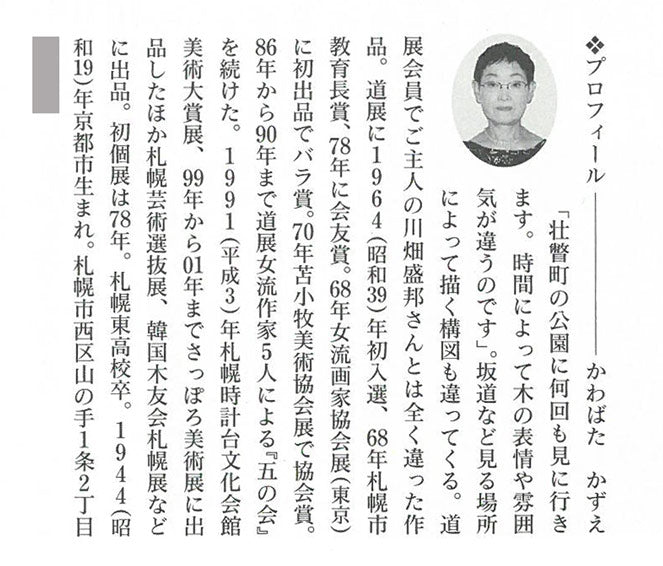 ❖プロフィール――――かわばた　かずえ
「壮瞥町の公園に何回も見に行き
ます。時間によって木の表情や雰囲
気が違うのです」。坂道など見る場所
によって描く構図も違ってくる。道
展会員でご主人の川畑盛邦さんとは全く違った作
品。道展に1964(昭和39)年初入選、68年札幌市
教育長賞、78年に会友賞。68年女流画家協会展(東京)
に初出品でバラ賞。70年苫小牧美術協会展で協会賞。
86年から90年まで道展女流作家5人による『五の会』
を続けた。1991(平成3)年札幌時計台文化会館
美術大賞展、99年から01年までさっぽろ美術展に出
品したほか札幌芸術選抜展、韓国木友会札幌展など
に出品。初個展は78年。札幌東高校卒。1944(昭
和19)年京都市生まれ。札幌市西区山の手1条2丁目